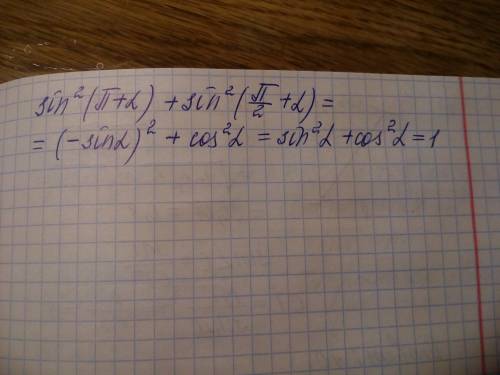 sin²(π+α) + sin²(π/2+α) =
= (-sinα)² + cos²α = sin²α + cos²α = 1